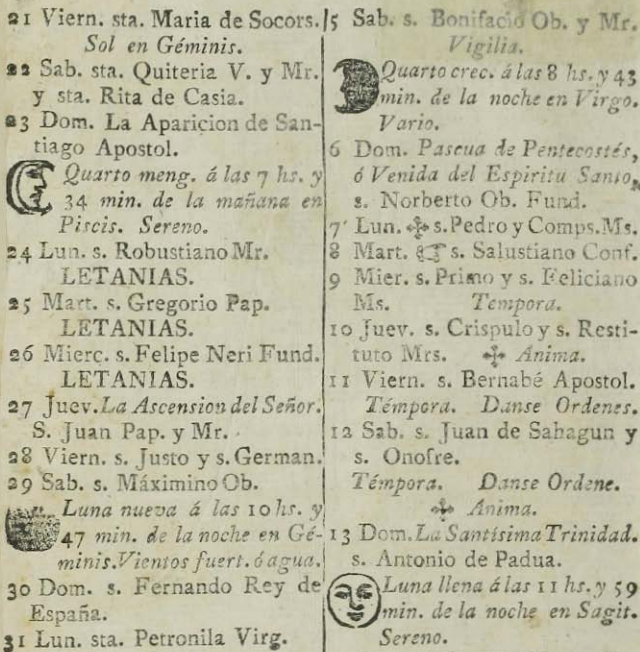 21 Viern. sta. Maria de Socors.
Sol en Géminis.
22 Sab. sta. Quiteria V. y Mr.
y sta. Rita de Casia.
23 Dom. La Aparicion de San-
tiago Apostol.
Quarto meng. á las 7 hs. y
34 min. de la mañana en
Piscis. Sereno.
24 Lun. s. Robustiano Mr.
LETANIAS.
25 Mart. s. Gregorio Pap.
LETANIAS.
26 Mierc. s. Felipe Neri Fund.
LETANIAS.
27 Juev. La Ascension del Señor.
S. Juan Pap. y Mr.
28 Viern. s. Justo y s. German.
29 Sab. s. Máximino Ob.
Luna nueva á las 10 hs. y
47 min. de la noche en Gé-
minis. Vientos fuert. ó agua.
30 Dom. s. Fernando Rey de
España.
31 Lun. sta. Petronila Virg.
5 Sab. s. Bonifacio Ob. y Mr.
Vigilia.
Quarto crec. á las 8 hs. y 43
min. de la noche en Virgo.
Vario.
6 Dom. Pascua de Pentecostés,
ó Venida del Espiritu Santo,
s. Norberto Ob. Fund.
7 Lun. ✠ s. Pedro y Comps. Ms.
8 Mart. ☞ s. Salustiano Conf.
9 Mier. s. Primo y s. Feliciano
Ms. Tempora.
10 Juev. s. Crispulo y s. Resti-
tuto Mrs. ✠ Anima.
11 Viern. s. Bernabé Apostol.
Témpora. Danse Ordenes.
12 Sab. s. Juan de Sahagun y
s. Onofre.
Témpora. Danse Ordene.
✠ Anima.
13 Dom. La Santísima Trinidad.
s. Antonio de Padua.
Luna llena á las 11 hs. y 59
min. de la noche en Sagit.
Sereno.